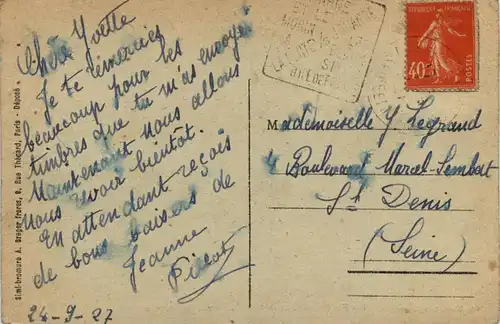 Chère Yvette
Je te remercies
beaucoup pour les
timbres que tu m'as envoyé
Maintenant nous allons
nous revoir bientôt.
En attendant reçois
de bons baisers de
Jeanne
24-9-27
Mademoiselle Y Legrand
4 Boulevard Marcel-Sembat
St Denis
(Seine)
RÉPUBLIQUE FRANÇAISE
40c
POSTES
Simi-bromure A. Breger frères, 9, Rue Thénard, Paris - Déposé